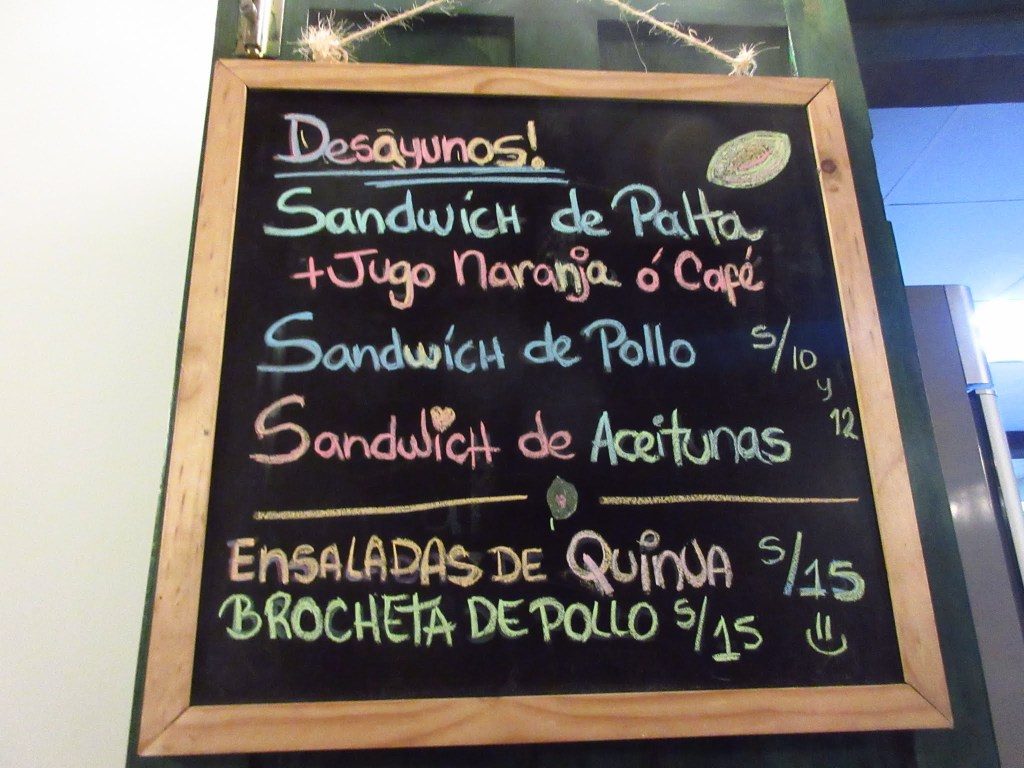 Desayunos!
Sandwich de Palta
+Jugo Naranja ó Café
Sandwich de Pollo S/10
y
12
Sandwich de Aceitunas
ENSALADAS DE QUINUA S/15
BROCHETA DE POLLO S/15